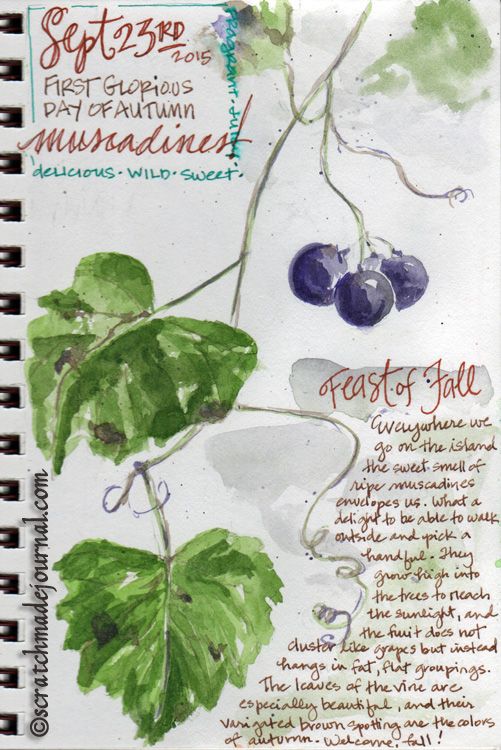 Sept 23RD
2015
FIRST GLORIOUS
DAY OF AUTUMN
muscadines!
delicious · WILD · SWEET ·
FRAGRANT · JUICY
Feast of Fall
Everywhere we
go on the island
the sweet smell of
ripe muscadines
envelopes us. What a
delight to be able to walk
outside and pick a
handful. They
grow high into
the trees to reach
the sunlight, and
the fruit does not
cluster like grapes but instead
hangs in fat, flat groupings.
The leaves of the vine are
especially beautiful, and their
varigated brown spotting are the colors
of autumn. Welcome, fall!
©scratchmadejournal.com